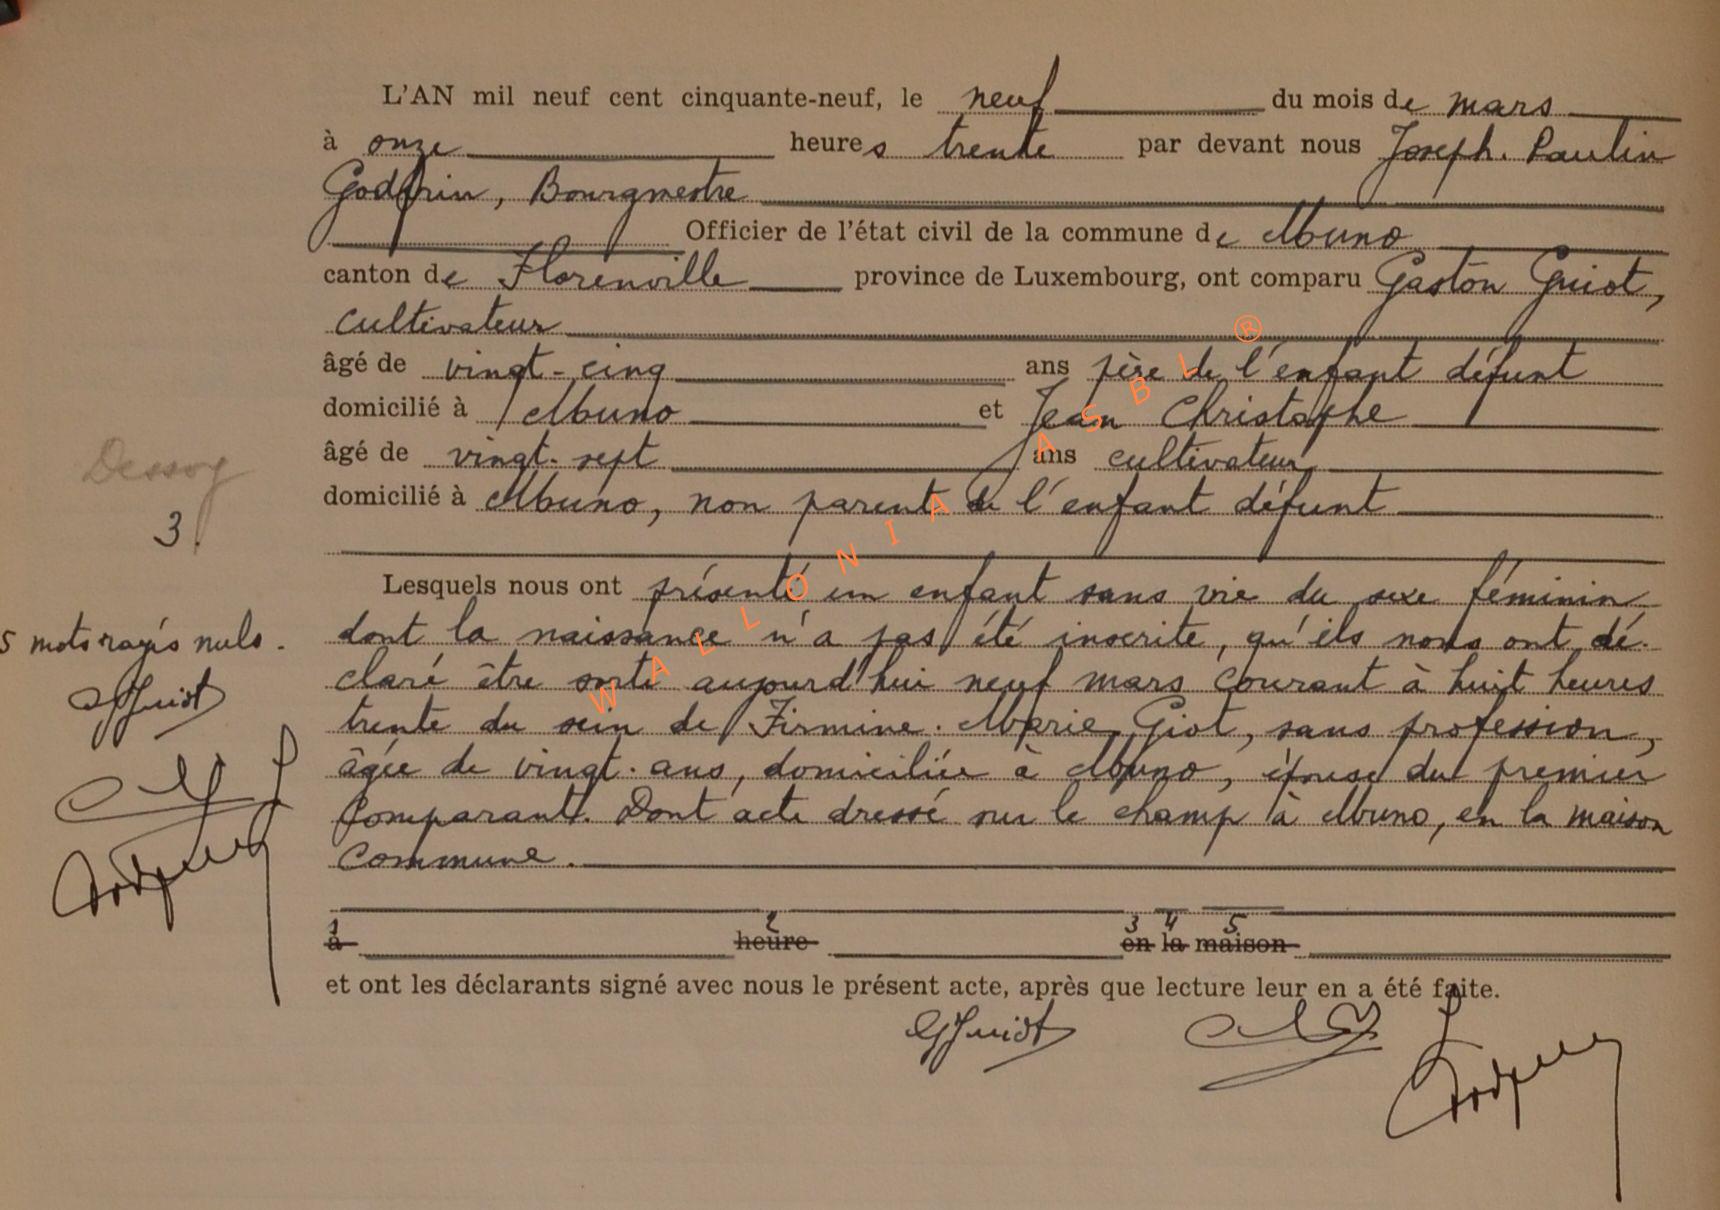 L'AN mil neuf cent cinquante-neuf, le neuf du mois de mars
à onze heures trente par devant nous Joseph. Paulin
Godfrin, Bourgmestre
Officier de l'état civil de la commune de Muno
canton de Florenville province de Luxembourg, ont comparu Gaston Guiot,
cultivateur
âgé de vingt-cinq ans père de l'enfant défunt
domicilié à Muno et Jean Christophe
âgé de vingt-sept ans cultivateur,
domicilié à Muno, non parent de l'enfant défunt
Dessoy
3.
Lesquels nous ont présenté un enfant sans vie du sexe féminin
dont la naissance n'a pas été inscrite, qu'ils nous ont dé-
claré être sorti aujourd'hui neuf mars courant à huit heures
trente du sein de Firmine-Marie Giot, sans profession,
âgée de vingt-ans, domiciliée à Muno, épouse du premier
comparant. Dont acte dressé sur le champ à Muno, en la maison
commune.
5 mots rayés nuls.
GGuiot
1 2 3 4 5
à heure en la maison
et ont les déclarants signé avec nous le présent acte, après que lecture leur en a été faite.
GGuiot
WALLONIA ASBL ®